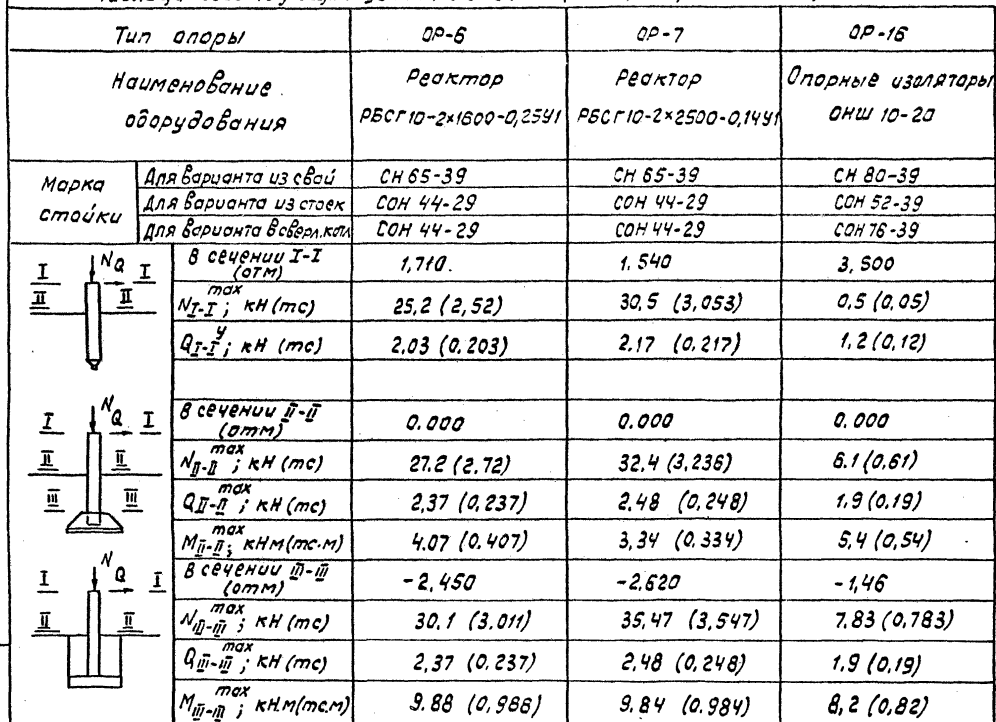 Тип опоры ОР-6 ОР-7 ОР-16
Наименование оборудования
Реактор РБСГ10-2×1600-0,25У1
Реактор РБСГ10-2×2500-0,14У1
Опорные изоляторы ОНШ 10-20
Марка стойки
Для варианта из свай СН 65-39 СН 65-39 СН 80-39
Для варианта из стоек СОН 44-29 СОН 44-29 СОН 52-39
Для варианта в сверл.котл СОН 44-29 СОН 44-29 СОН 76-39
N Q
I I
II II
В сечении I-I (отм) 1,710. 1.540 3,500
N I-I max; кН (тс) 25,2 (2,52) 30,5 (3,053) 0,5 (0,05)
Q I-I у; кН (тс) 2,03 (0,203) 2,17 (0,217) 1,2 (0,12)
N Q
I I
II II
III III
В сечении II-II (отм) 0.000 0.000 0.000
N II-II max; кН (тс) 27.2 (2.72) 32,4 (3,236) 6.1 (0,61)
Q II-II max; кН (тс) 2,37 (0,237) 2,48 (0,248) 1,9 (0,19)
M II-II max; кНм (тс.м) 4.07 (0.407) 3,34 (0.334) 5,4 (0,54)
N Q
I I
II II
В сечении III-III (отм) -2,450 -2,620 -1,46
N III-III max; кН (тс) 30,1 (3.011) 35,47 (3,547) 7.83 (0,783)
Q III-III max; кН (тс) 2,37 (0.237) 2,48 (0.248) 1,9 (0,19)
M III-III max; кН.м (тс.м) 9.88 (0,988) 9,84 (0.984) 8,2 (0,82)